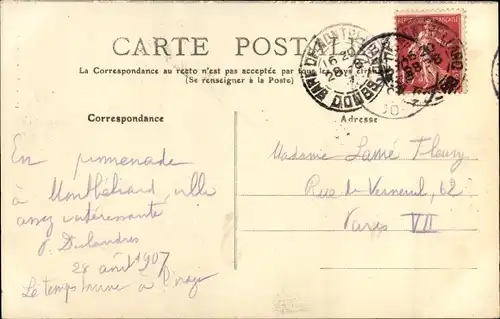 CARTE POSTALE
La Correspondance au recto n'est pas acceptée par tous
(Se renseigner à la Poste)
RÉPUBLIQUE FRANÇAISE
16 20
DOUBS
Correspondance
Adresse
En promenade
à Montbéliard, ville
assez intéressante
28 août 1907
Le temps tourne à l'orage
Madame Lamé Fleury
Rue de Verneuil, 62
Paris VII